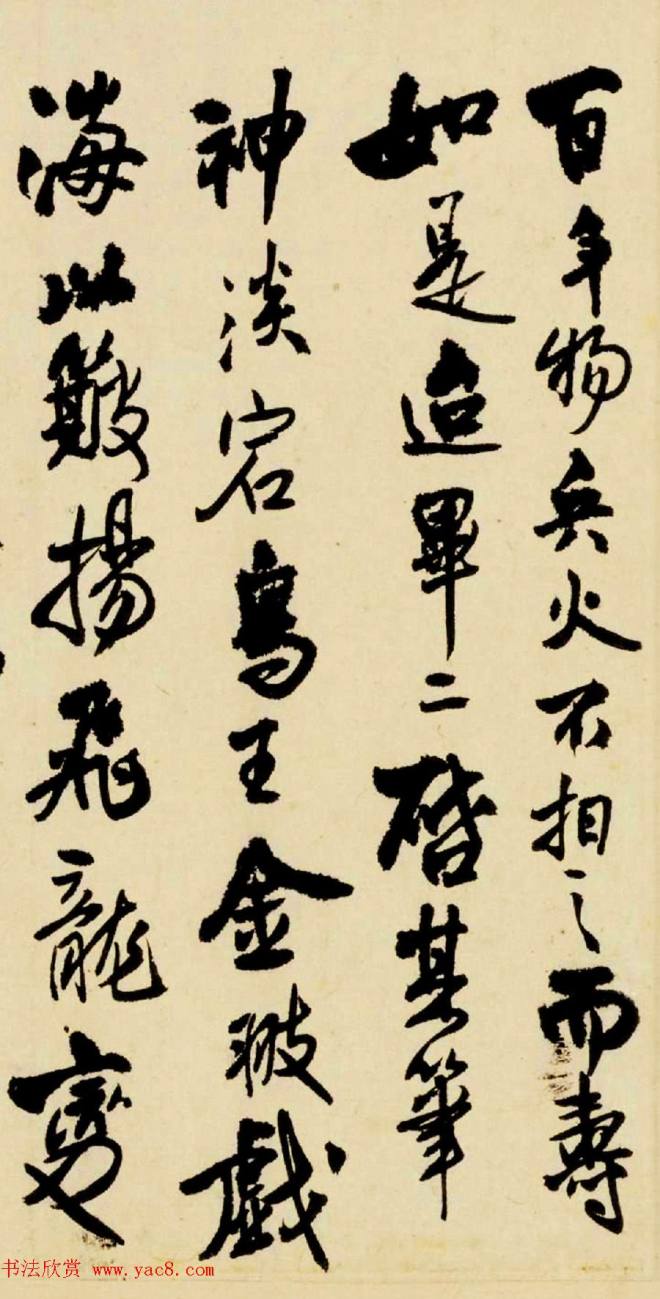 百年物兵火不担之而壽
如是追畢二啓其筆
神淡宕為王金璈戲
海以簸揚飛龍
书法欣赏 www.yac8.com